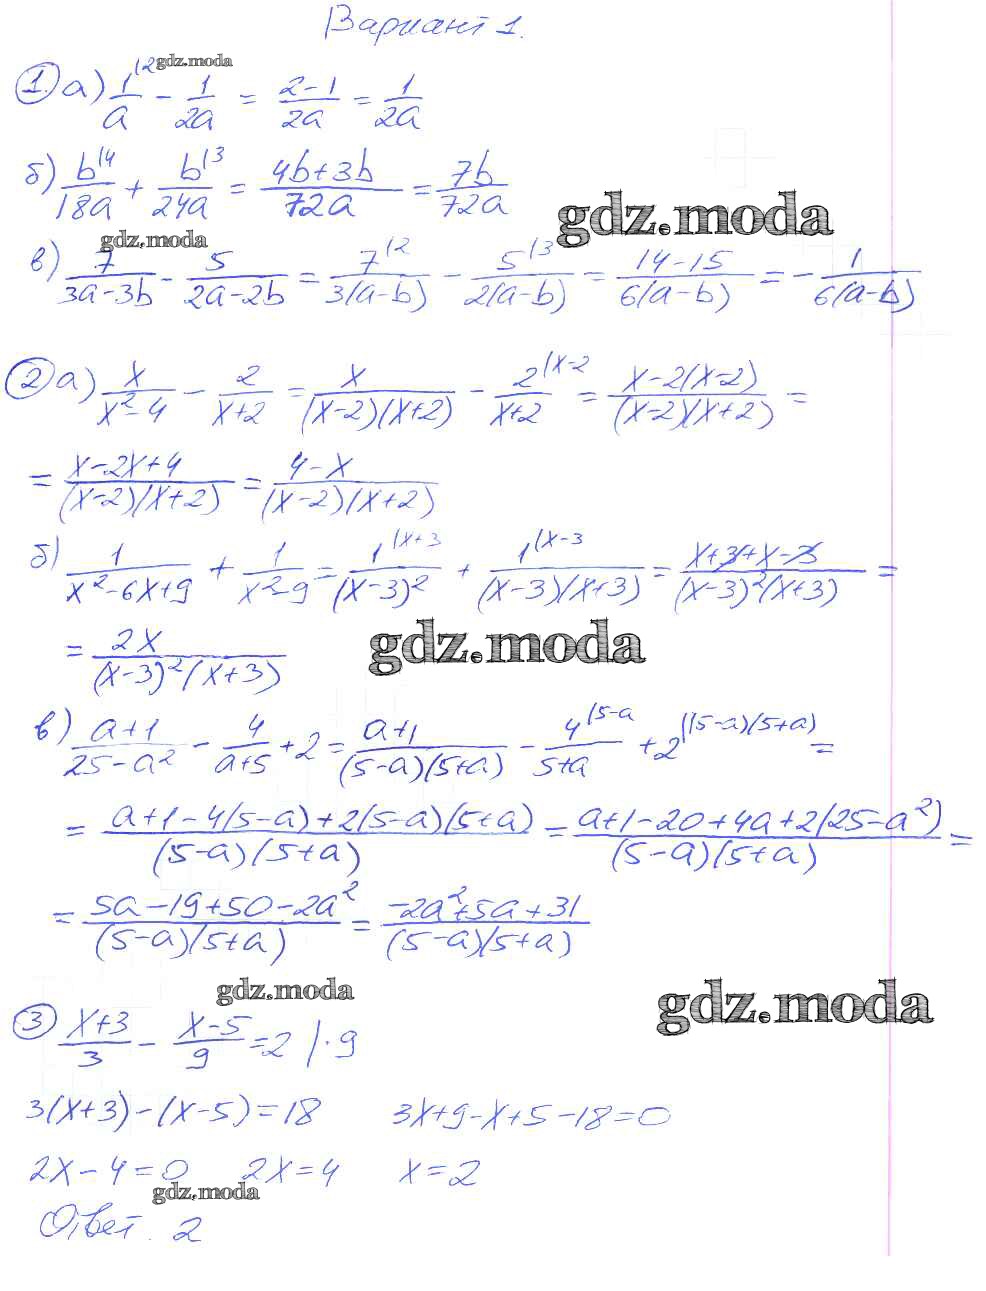 Вариант 1.
gdz.moda
1. а) 1^{\2}/a - 1/2a = (2-1)/2a = 1/2a
б) b^{\4}/18a + b^{\3}/24a = (4b+3b)/72a = 7b/72a
gdz.moda
gdz.moda
в) 7/(3a-3b) - 5/(2a-2b) = 7^{\2}/3(a-b) - 5^{\3}/2(a-b) = (14-15)/6(a-b) = - 1/6(a-b)
2 а) x/(x²-4) - 2/(x+2) = x/(x-2)(x+2) - 2^{\x-2}/(x+2) = (x-2(x-2))/(x-2)(x+2) =
= (x-2x+4)/(x-2)(x+2) = (4-x)/(x-2)(x+2)
б) 1/(x²-6x+9) + 1/(x²-9) = 1^{\x+3}/(x-3)² + 1^{\x-3}/(x-3)(x+3) = (x+3+x-3)/(x-3)²(x+3) =
= 2x/(x-3)²(x+3)
gdz.moda
в) (a+1)/(25-a²) - 4/(a+5) + 2 = (a+1)/(5-a)(5+a) - 4^{\5-a}/(5+a) + 2^{\(5-a)(5+a)} =
= (a+1-4(5-a)+2(5-a)(5+a))/(5-a)(5+a) = (a+1-20+4a+2(25-a²))/(5-a)(5+a) =
= (5a-19+50-2a²)/(5-a)(5+a) = (-2a²+5a+31)/(5-a)(5+a)
gdz.moda
gdz.moda
3 (x+3)/3 - (x-5)/9 = 2 | · 9
3(x+3)-(x-5)=18 3x+9-x+5-18=0
2x-4=0 2x=4 x=2
gdz.moda
Ответ. 2